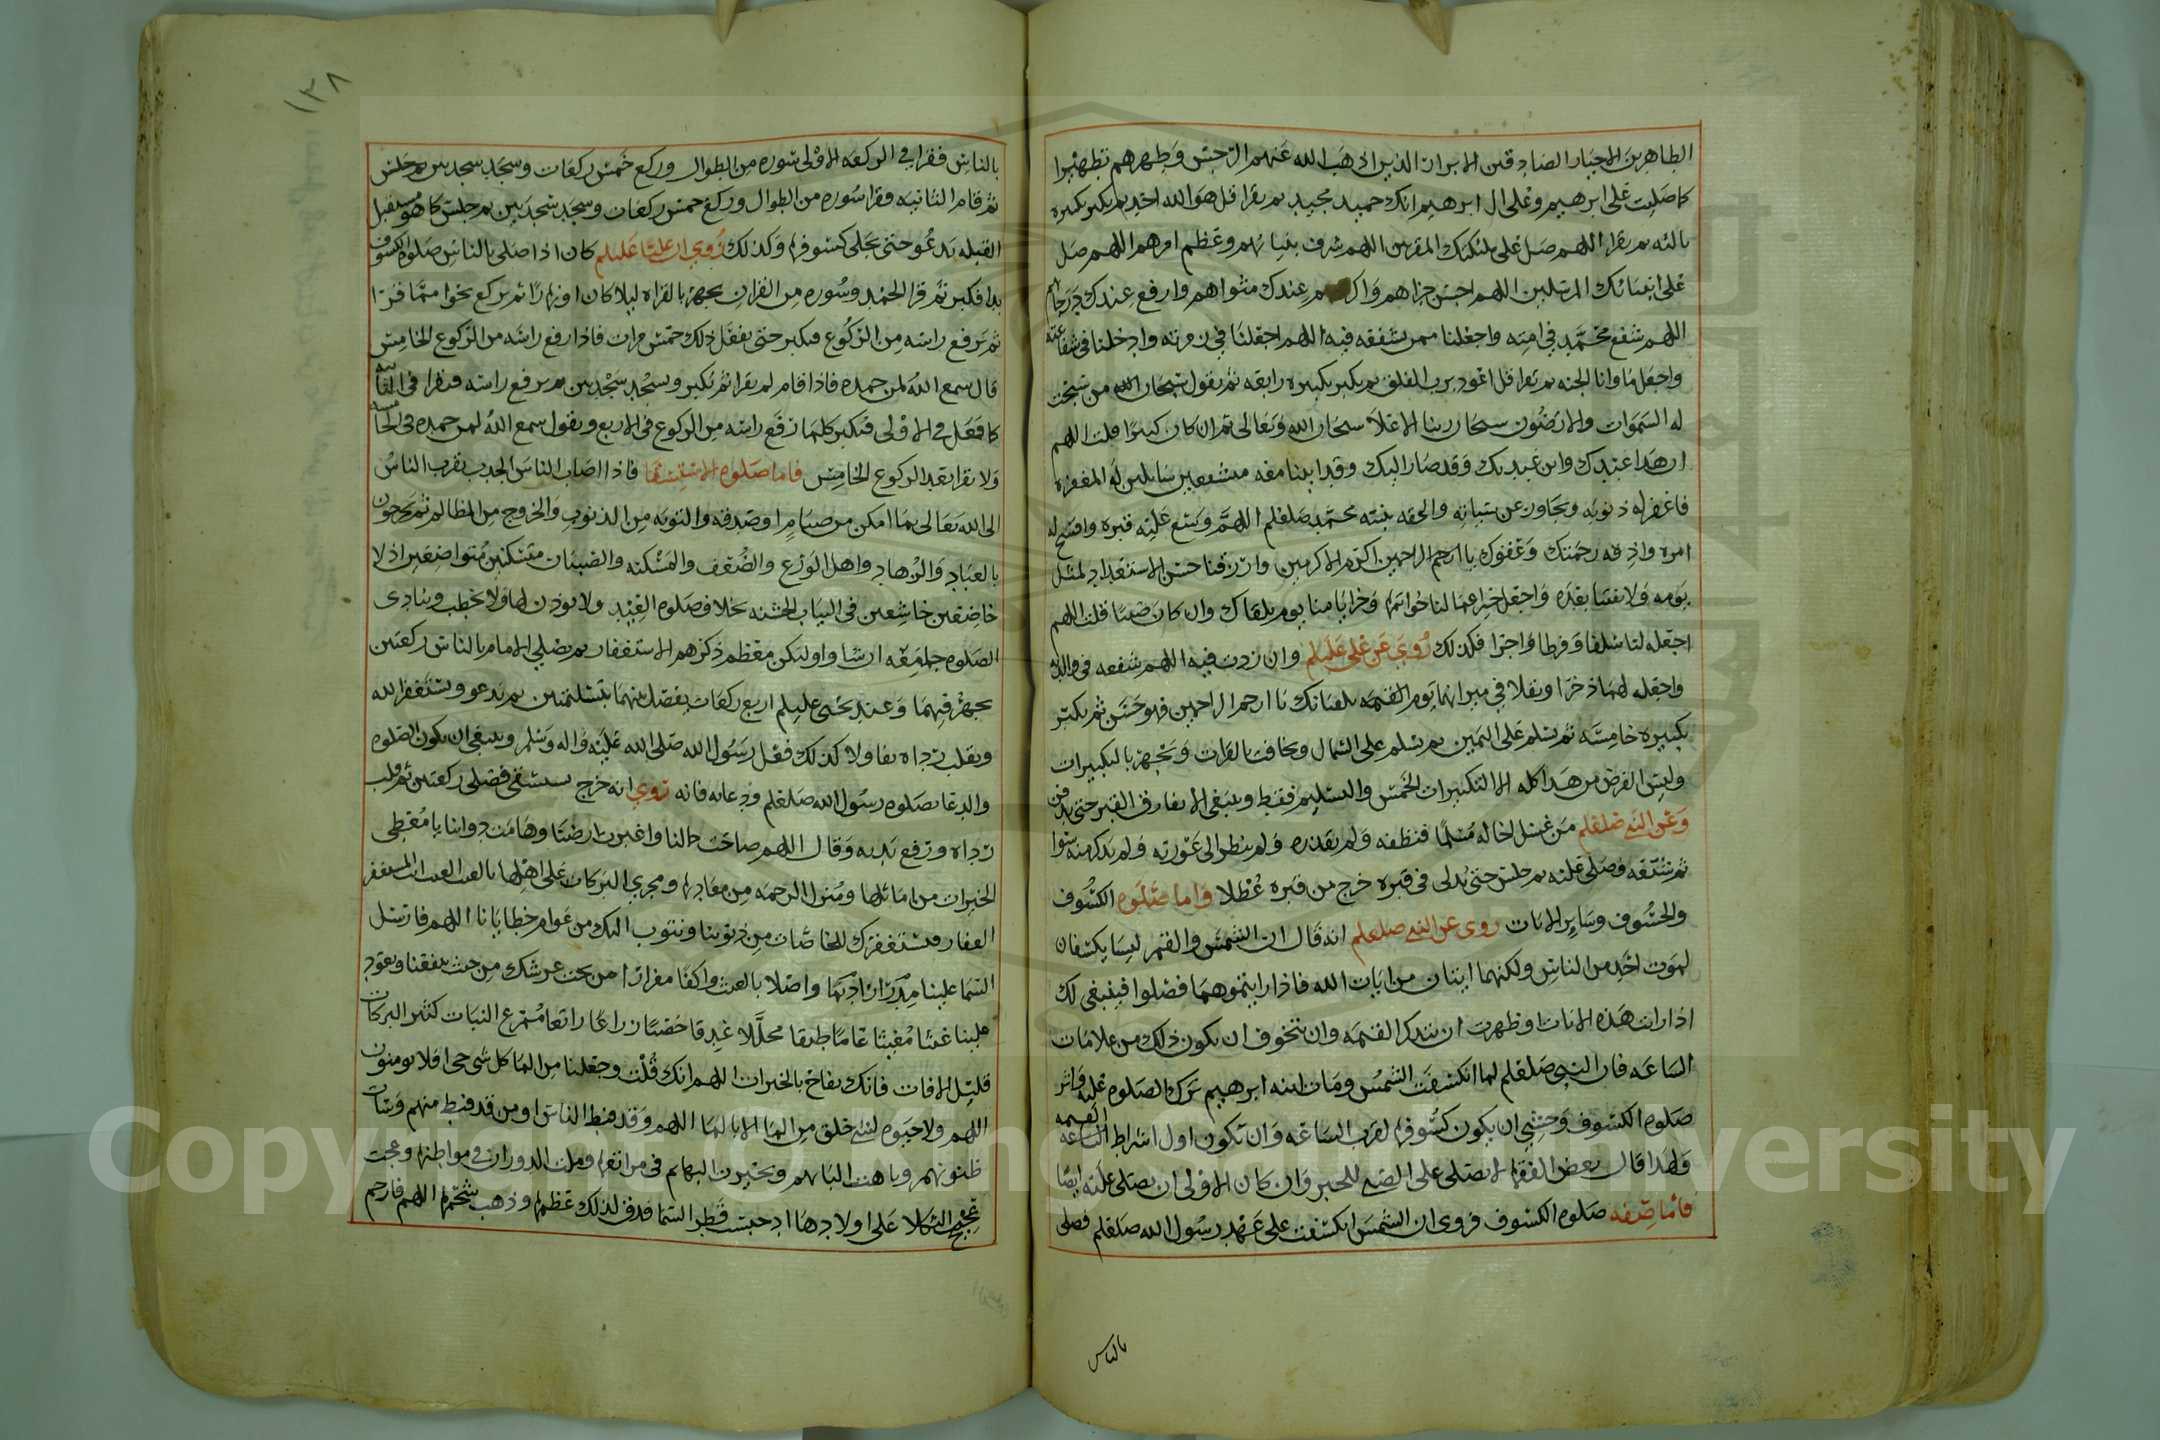 الطاهرين الاخيار الصادقين الابرار الذين اذهب الله عنهم الرجس وطهرهم تطهيرا
كما صليت على ابرهيم وعلى ال ابرهيم انك حميد مجيد ثم يقرا قل هو الله احد ثم يكبر تكبيره
ثالثه ثم يقرا اللهم صل على ملئكتك المقربين اللهم شرف بنيانهم وعظم امرهم اللهم صل
على انبيائك المرسلين اللهم احسن جزاهم واكرم عندك مثواهم وارفع عندك درجاتهم
اللهم شفع محمد في امته واجعلنا ممن تشفعه فيه اللهم اجعلنا في زمرته وادخلنا في شفاعته
واجعل ماوانا الجنه ثم يقرا قل اعوذ برب الفلق ثم يكبر تكبيره رابعه ثم يقول سبحان من سبحت
له السموات والارضون سبحان ربنا الاعلا سبحان الله وتعالى ثم ان كان كبيرا قلت اللهم
ان هذا عبدك وابن عبديك وقد صار اليك وقد اتينا معه متشفعين سايلين له المغفره
فاغفر له ذنوبه وتجاوز عن سياته والحقه بنبيه محمد صلعلم اللهم وسع عليه قبره وافسح له
امره واذقه رحمتك وعفوك يا ارحم الراحمين اكرم الاكرمين وارزقنا حسن الاستعداد لمثل
يومه ولا تفتنا بعده واجعل خير اعمالنا خواتمها وخير ايامنا يوم نلقاك وان كان صبيا قلت اللهم
اجعله لنا سلفا وفرطا واجرا فكذلك روي عن علي عليلم وان زدت فيه اللهم شفعه في والديه
واجعله لهما ذخرا وثقلا في ميزانهما يوم القيمه يا ارحم الراحمين فهو حسن ثم يكبر
تكبيره خامسه ثم يسلم على اليمين ثم يسلم على الشمال ويخافت بالقراءت ويجهر بالتكبيرات
وليس الفرض من هذا كله الا التكبيرات الخمس والتسليم فقط وينبغي الا يفارق القبر حتى يدفن
وعن النبي صلعلم من غسل اخا له مسلما فنظفه ولم يقذره ولم ينظر الى عورته ولم يذكر منه سوا
ثم شيعه وصلى عليه ثم جلس حتى يدلى في قبره خرج من قبره عطلا واما صلوه الكسوف
والخسوف وساير الايات روى عن النبي صلعلم انه قال ان الشمس والقمر ليسا يكسفان
لموت احد من الناس ولكنهما ايتان من ايات الله فاذا رايتموهما فصلوا فينبغي لك
اذا رات هذه الايات او ظهرت ان تتذكر القيمه وان تتخوف ان يكون ذلك من علامات
الساعه فان النبي صلعلم لما انكسفت الشمس ومات ابنه ابرهيم ترك الصلوه عليه واثر
صلوه الكسوف وخشي ان يكون كسوفها لقرب الساعه وان تكون اول اشراط القيمه
ولهذا قال بعض الفقها لا يصلى على الصبي للخبر وان كان الاولى ان يصلى عليه ايضا
فاما صفه صلوه الكسوف فروى ان الشمس انكسفت على عهد رسول الله صلعلم فصلى
بالناس
١٣٨
بالناس فقرا في الركعه الاولى سوره من الطوال وركع خمس ركعات وسجد سجدتين ثم جلس
ثم قام الثانيه فقرا سوره من الطوال وركع خمس ركعات وسجد سجدتين ثم جلس كما هو مستقبل
القبله يدعو حتى تجلى كسوفها وكذلك روي ان عليا عليلم كان اذا صلى بالناس صلوه الكسوف
بدا فكبر ثم قرا الحمد وسوره من القران يجهر بالقراه ليلا كان او نهارا ثم يركع نحوا مما قرا
ثم يرفع راسه من الركوع فيكبر حتى يفعل ذلك خمس مرات فاذا رفع راسه من الركوع الخامس
قال سمع الله لمن حمده فاذا قام لم يقرا ثم يكبر ويسجد سجدتين ثم يرفع راسه فيقرا في الثانيه
كما فعل في الاولى فيكبر كلما رفع راسه من الركوع في الاربع ويقول سمع الله لمن حمده في الخامسه
ولا يقرا بعد الركوع الخامس فاما صلوه الاستسقا فاذا اصاب الناس الجدب تقرب الناس
الى الله تعالى بما امكن من صيام او صدقه والتوبه من الذنوب والخروج من المظالم ثم يخرجون
بالعباد والزهاد واهل الورع والضعف والمسكنه والصبيان متمسكنين متواضعين اذلا
خاضعين خاشعين في الثياب الخشنه بخلاف صلوه العيد ولا يوذن لها ولا يخطب وينادى
الصلوه جامعه ارسا واوليكن معظم ذكرهم الاستغفار ثم يصلي الامام بالناس ركعتين
يجهر فيهما وعند يحيى عليلم اربع ركعات يفصل بينهما بتسليمتين ثم يدعو ويستغفر الله
ويقلب رداه تفاولا كذلك فعل رسول الله صلى الله عليه واله وسلم وينبغي ان يكون الصلوه
والدعا بصلوه رسول الله صلعلم ودعايه فانه روي انه خرج يستسقي فصلى ركعتين ثم قلب
رداه ورفع يديه وقال اللهم صاحت جبالنا واغبرت ارضنا وهامت دوابنا يا معطي
الخيرات من اماكنها ومنزل الرحمه من معادنها ومجري البركات على اهلها بالغيث المغيث انت المستغفر
الغفار فنستغفرك للخاصات من ذنوبنا ونتوب اليك من عوام خطايانا اللهم فارسل
السما علينا مدرارا واصلا بالغيث واكفا مغزارا من تحت عرشك من حيث ينفعنا ويعود
علينا غيثا مغيثا عاما طبقا مجللا غدقا خصبا راتعا ممرع النبات كثير البركات
قليل الافات فانك نفاح بالخيرات اللهم انك قلت وجعلنا من الما كل شي حي افلا يومنون
اللهم ولا حيوه لشي خلق من الما الا بالما اللهم وقد قنط الناس او من قد قنط منهم وسات
ظنونهم وتاهت البهايم وتحيرت البهايم في مراتعها وملت الدوران في مواطنها وعجت
عجيج الثكلا على اولادها اذ حبست قطر السما فدق لذلك عظمها وذهب شحمها اللهم فارحم
Copyright © King Saud University